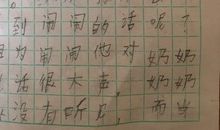 到闹闹的话呢？
为闹闹他对奶奶
话很大声，奶奶
没有听见，而当